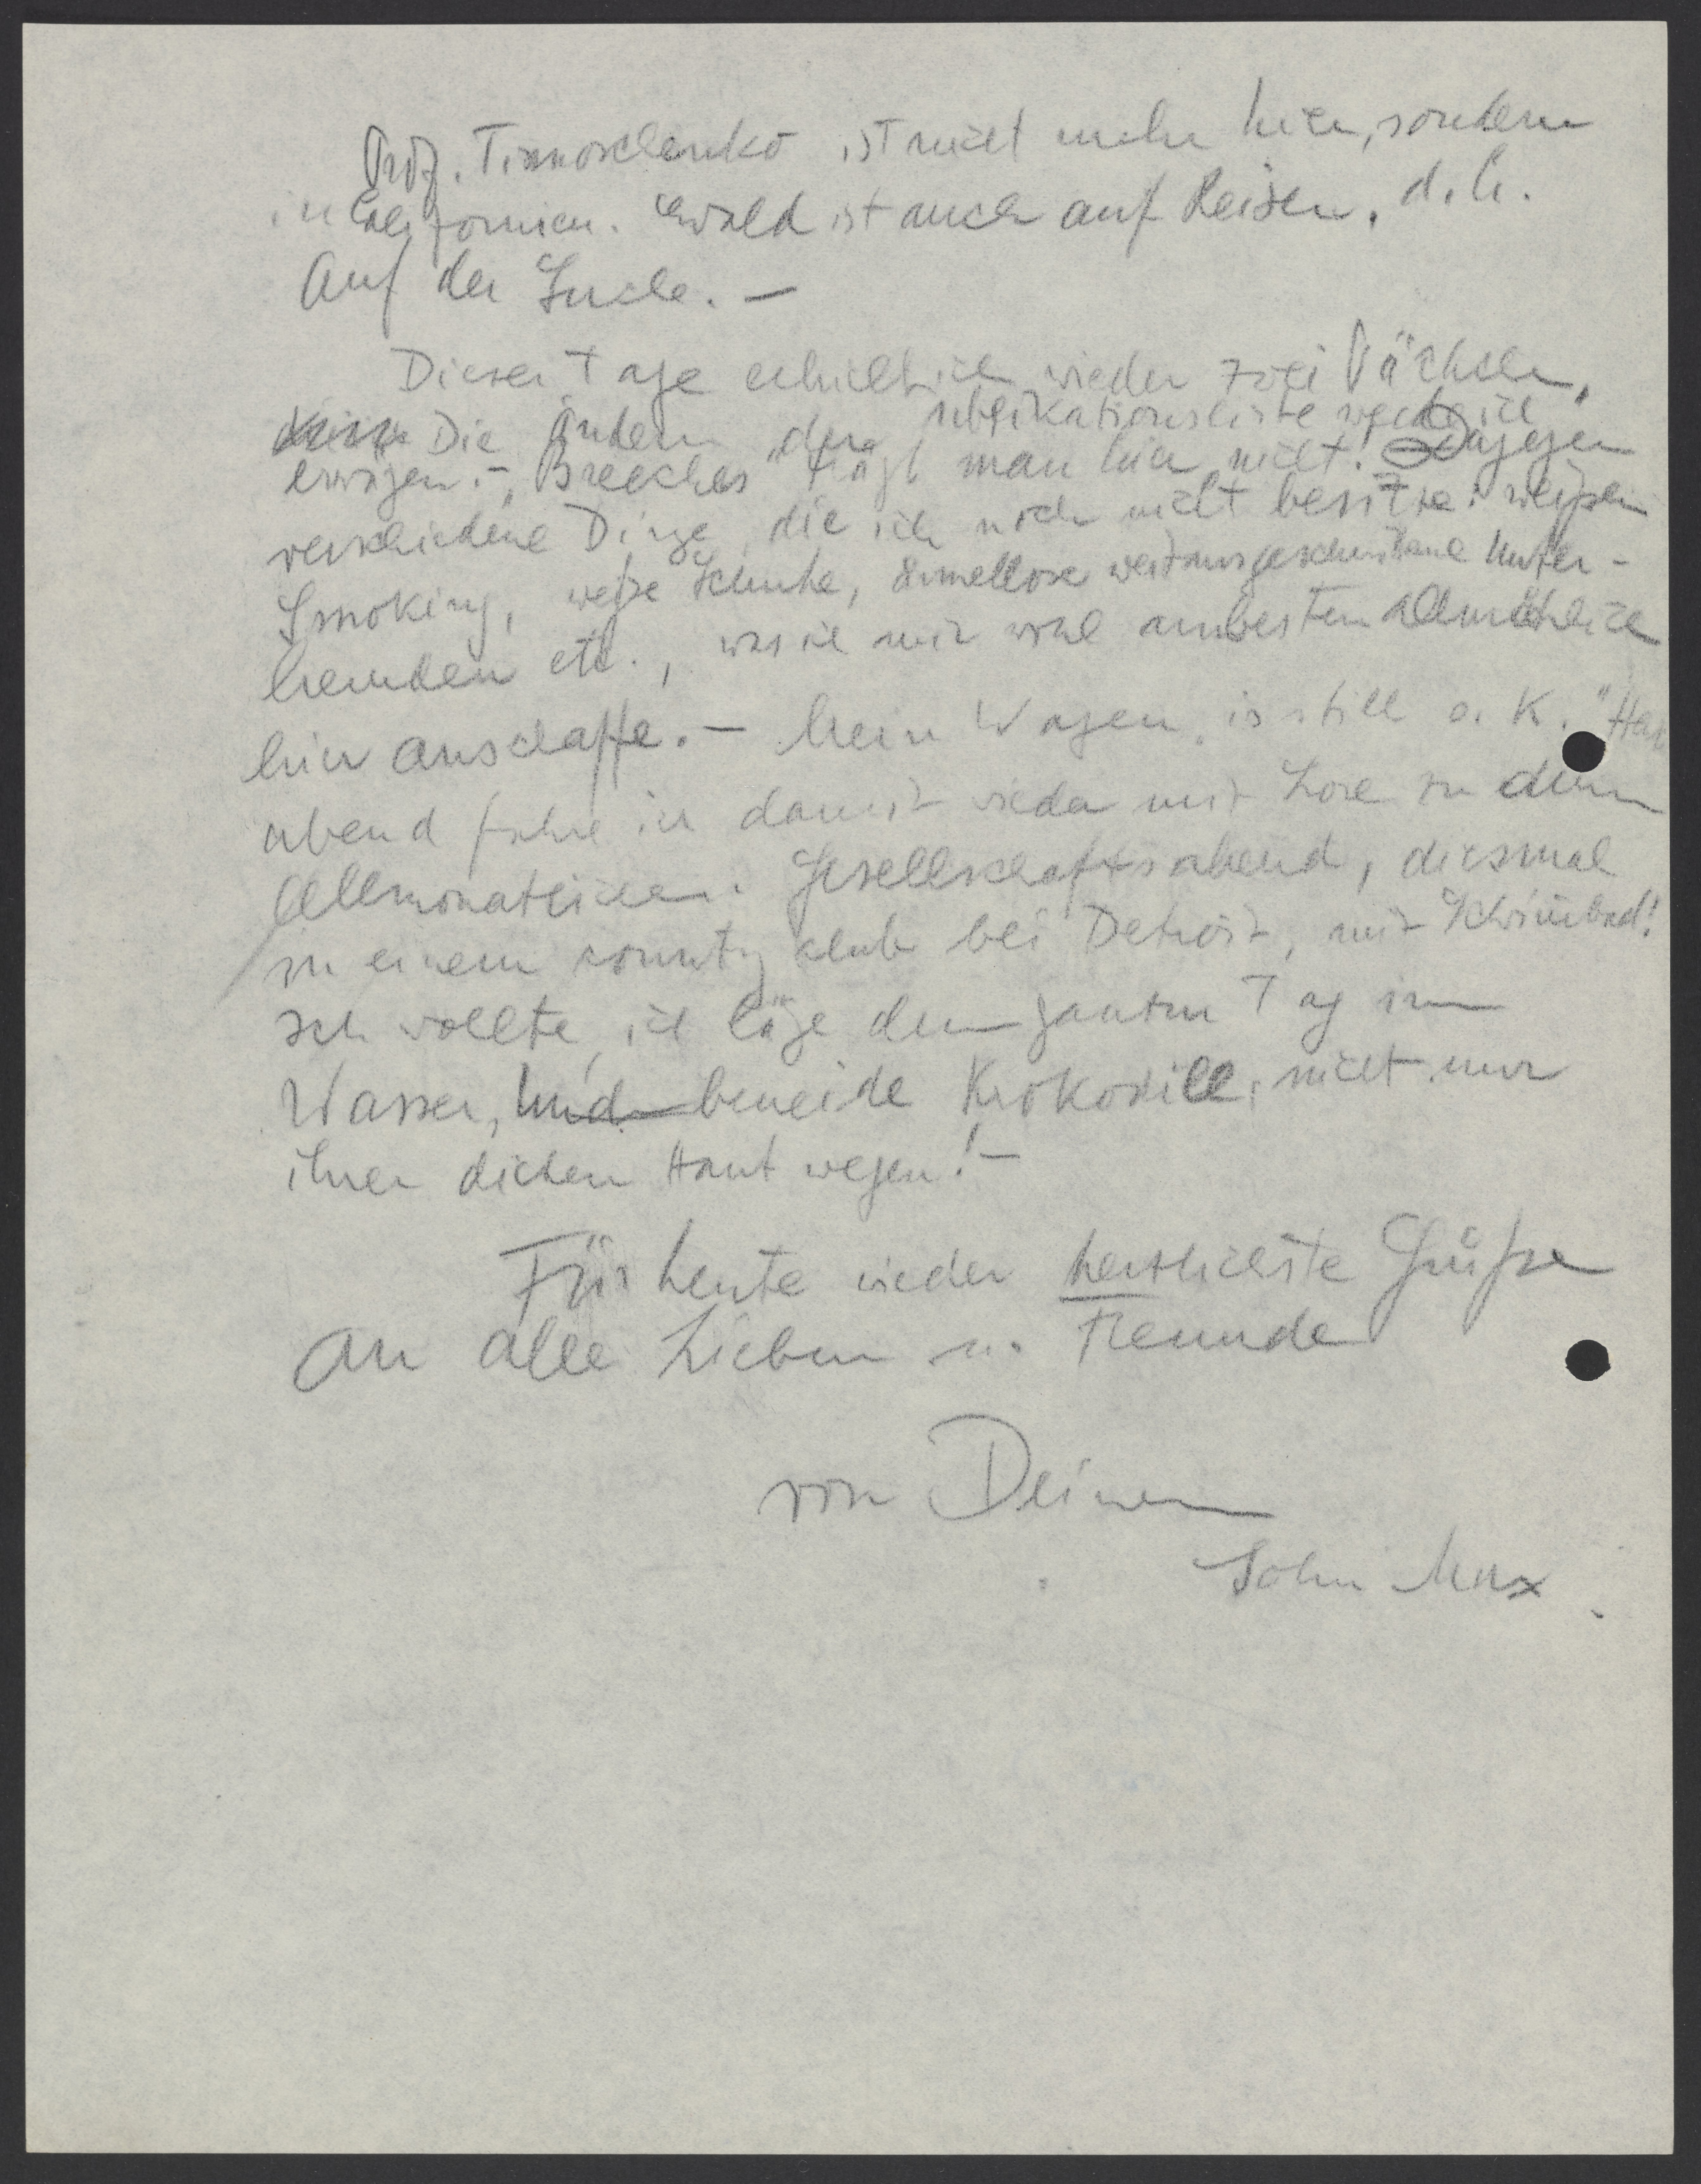 Prof. Timoschenko ist nicht mehr hier, sondern
in Californien. Ewald ist auch auf Reisen, d. h.
Auf der Suche. —
Dieser Tage erhielt ich wieder zwei Päckchen.
Die Ändern der Publikationsliste werde ich
erwägen. – "Breeches" trägt man hier nicht! Dagegen
verschiedene Dinge, die ich noch nicht besitze: weißen
Smoking, weiße Schuhe, ärmellose weitausgeschnittene Unter-
hemden etc., was ich mir wohl ambesten allmählich
hier anschaffe. – Mein Wagen "is still o. K." Heut
abend fahre ich damit wieder mit Lore zu dem
Allmonatlichen Gesellschaftsabend, diesmal
in einem country club bei Detroit, mit Schwimbad!
Ich wollte, ich läge den ganzen Tag im
Wasser, und beneide Krokodile, nicht nur
ihrer dicken Haut wegen! –
Für heute wieder herzlichste Grüße
An alle Lieben u. Freunde
von Deinem
Sohn Max.